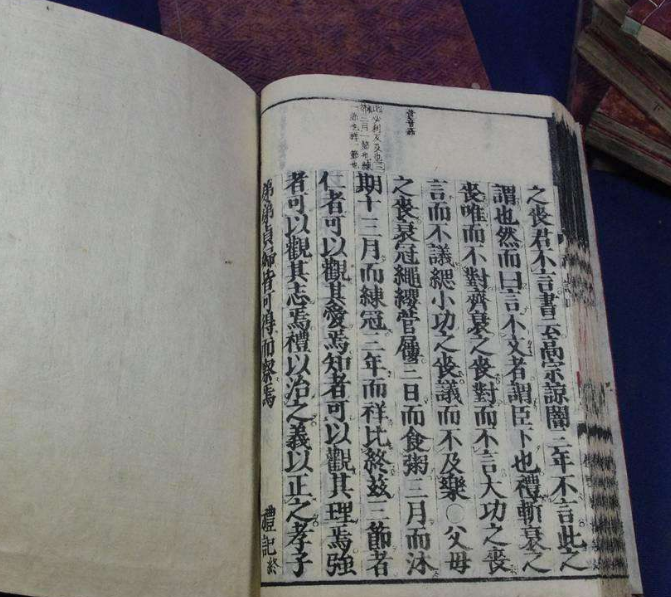 菅音姦
必利反及也三
之喪君不言書云高宗諒闇三年不言此之
謂也然而曰言不文者謂臣下也禮斬衰之
喪唯而不對齊衰之喪對而不言大功之喪
言而不議緦小功之喪議而不及樂○父母
之喪衰冠繩纓菅屨三日而食粥三月而沐
期十三月而練冠三年而祥比終茲三節者
仁者可以觀其愛焉知者可以觀其理焉強
者可以觀其志焉禮以治之義以正之孝子
弟弟貞婦皆可得而察焉 禮記終